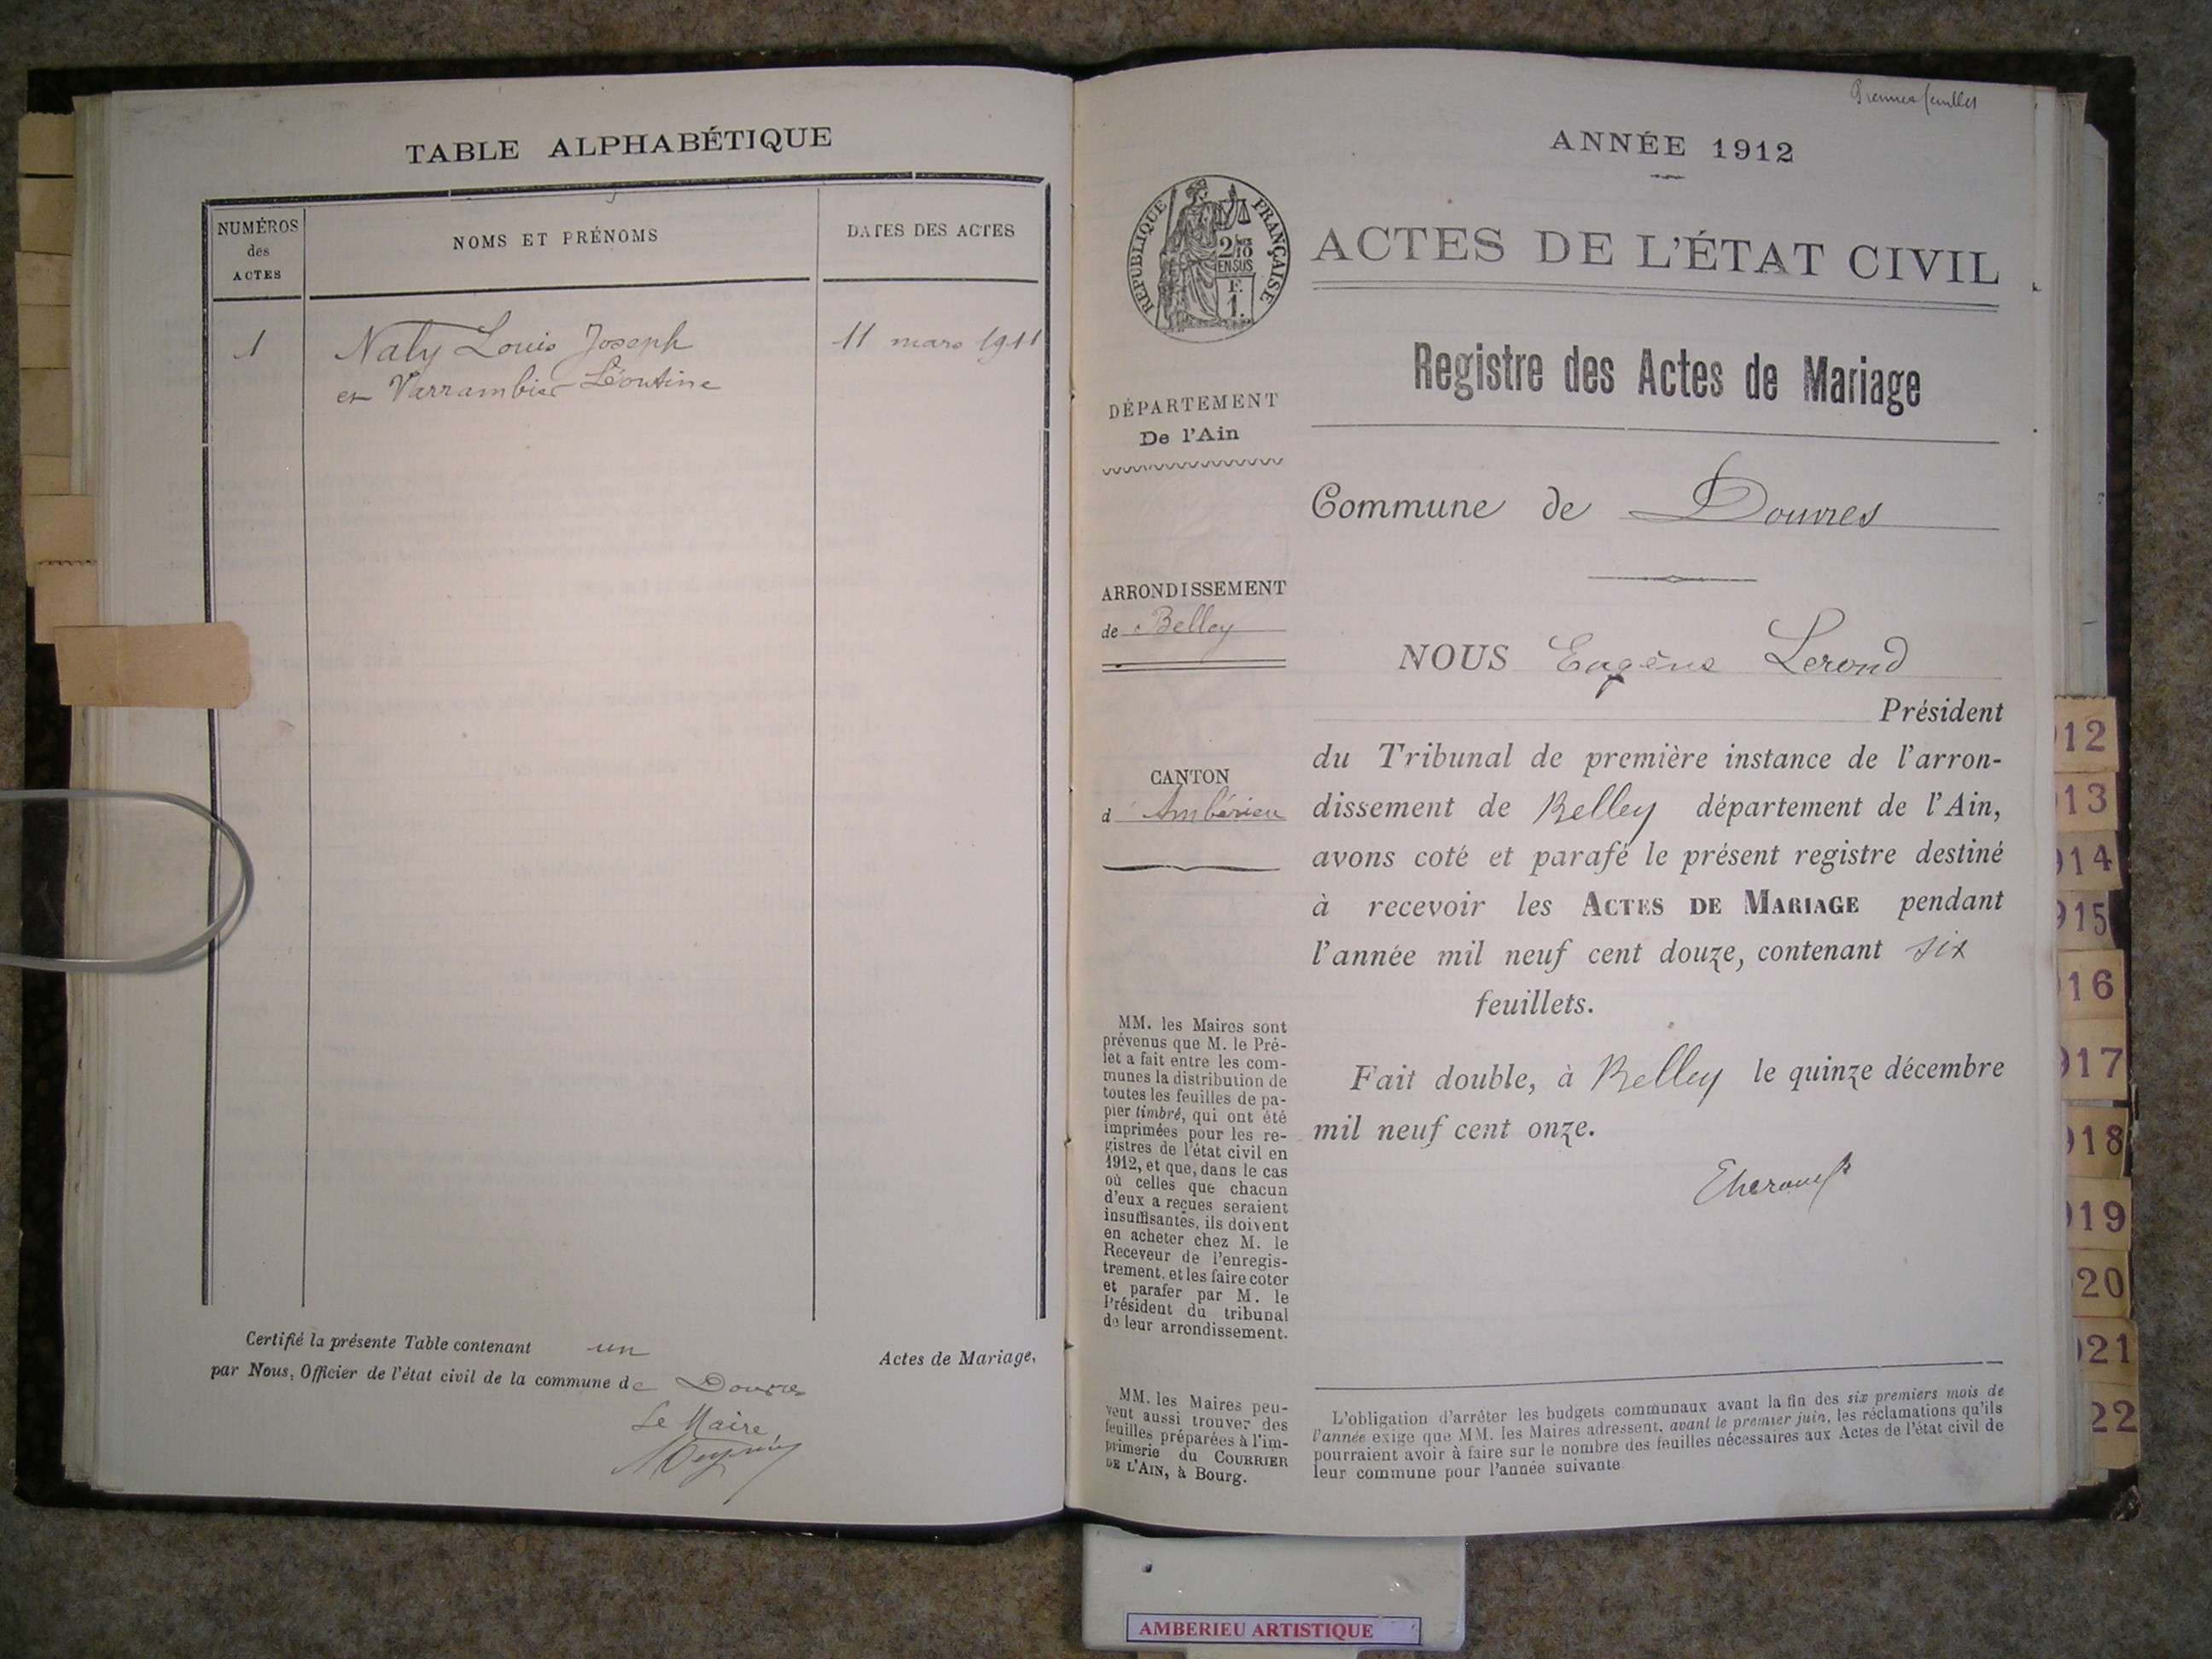 TABLE ALPHABÉTIQUE
NUMÉROS
des
ACTES
NOMS ET PRÉNOMS
DATES DES ACTES
1
Naly Louis Joseph
11 mars 1911
et Varrambier Léontine
Certifié la présente Table contenant un
Actes de Mariage,
par Nous, Officier de l'état civil de la commune de Douvres
Le Maire
Premier feuillet
ANNÉE 1912
RÉPUBLIQUE FRANÇAISE
2/10
EN SUS
F.
1.
ACTES DE L'ÉTAT CIVIL
Registre des Actes de Mariage
DÉPARTEMENT
De l'Ain
Commune de Douvres
ARRONDISSEMENT
de Belley
CANTON
d'Ambérieu
NOUS Eugène Lerond
Président
du Tribunal de première instance de l'arron-
dissement de Belley département de l'Ain,
avons coté et parafé le présent registre destiné
à recevoir les ACTES DE MARIAGE pendant
l'année mil neuf cent douze, contenant six
feuillets.
Fait double, à Belley le quinze décembre
mil neuf cent onze.
MM. les Maires sont
prévenus que M. le Pré-
fet a fait entre les com-
munes la distribution de
toutes les feuilles de pa-
pier timbré, qui ont été
imprimées pour les re-
gistres de l'état civil en
1912, et que, dans le cas
où celles que chacun
d'eux a reçues seraient
insuffisantes, ils doivent
en acheter chez M. le
Receveur de l'enregis-
trement, et les faire coter
et parafer par M. le
Président du tribunal
de leur arrondissement.
MM. les Maires peu-
vent aussi trouver des
feuilles préparées à l'im-
primerie du COURRIER
DE L'AIN, à Bourg.
L'obligation d'arrêter les budgets communaux avant la fin des six premiers mois de
l'année exige que MM. les Maires adressent, avant le premier juin, les réclamations qu'ils
pourraient avoir à faire sur le nombre des feuilles nécessaires aux Actes de l'état civil de
leur commune pour l'année suivante
12
13
14
15
16
17
18
19
20
21
22
AMBERIEU ARTISTIQUE